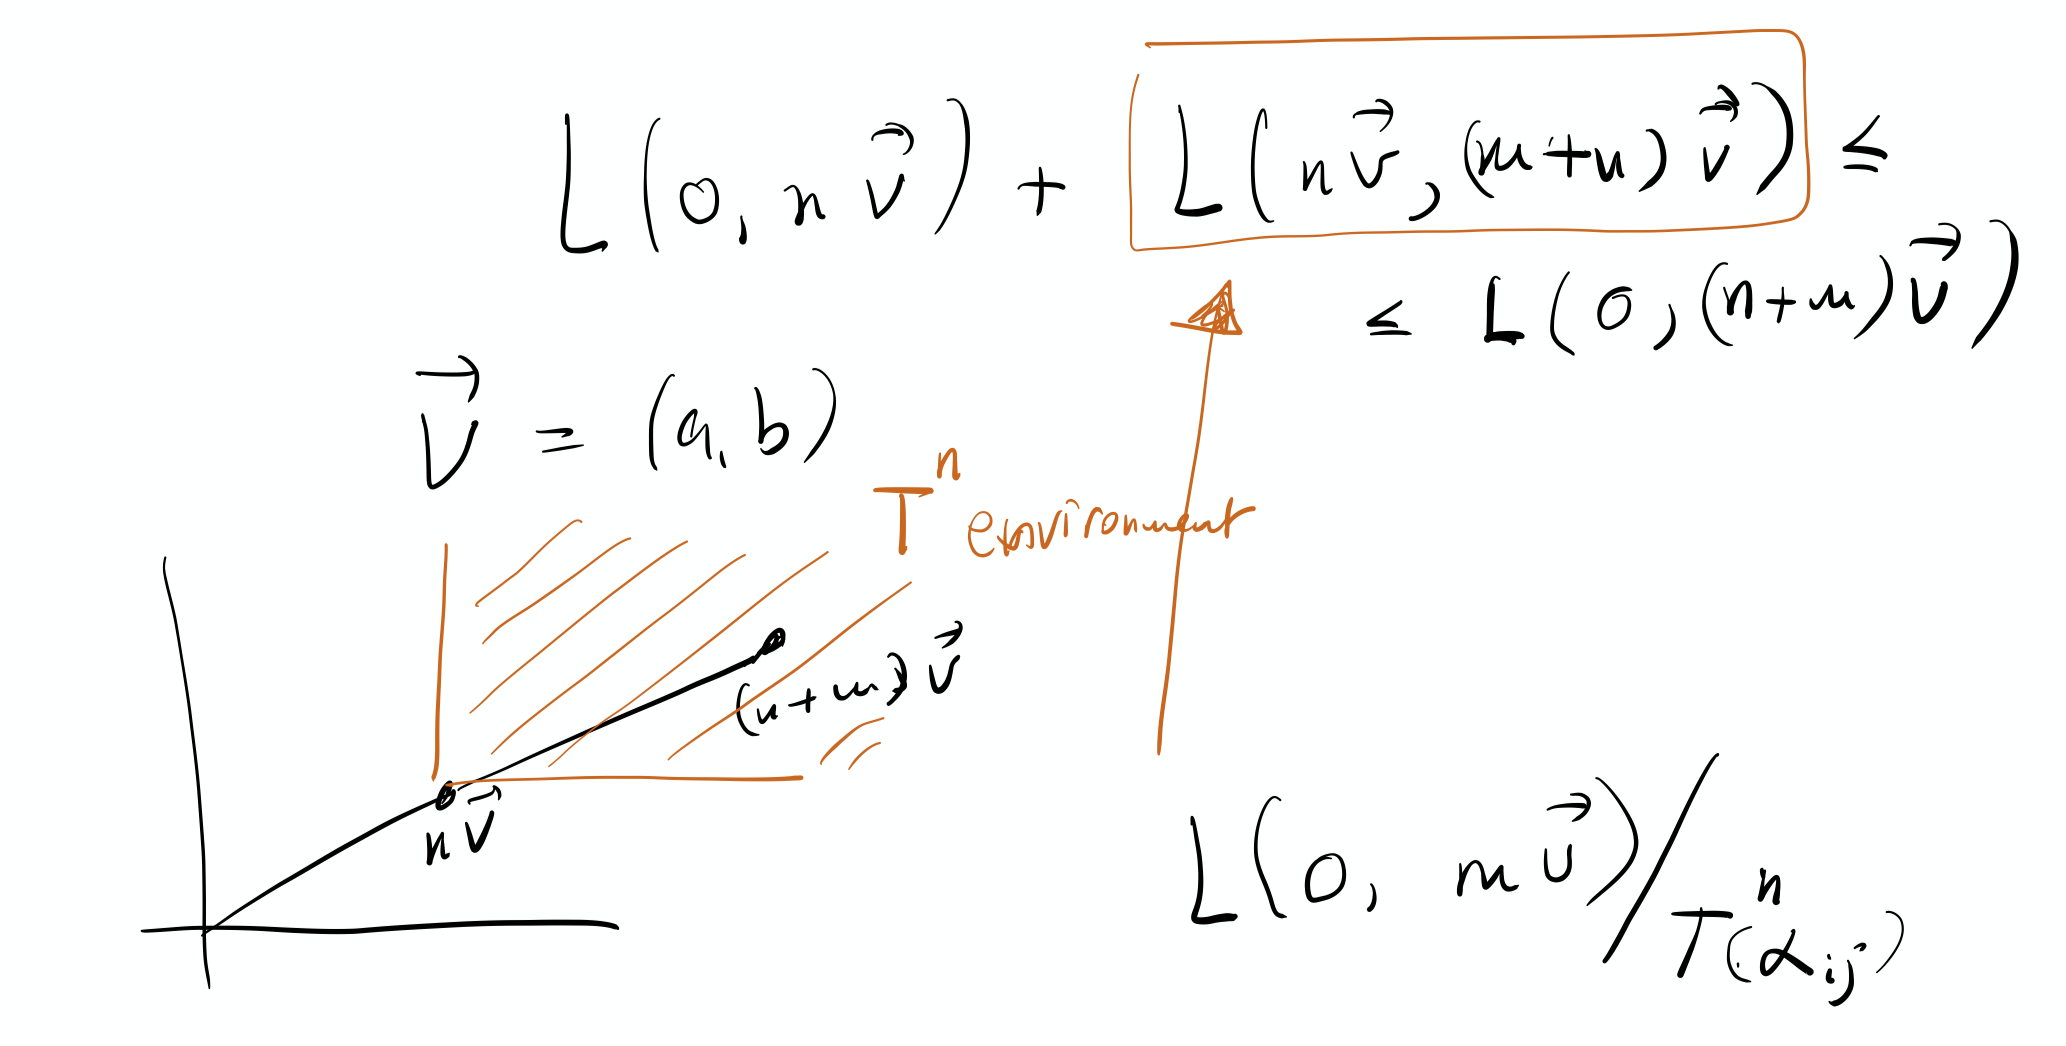 L(0, n v⃗) + L(n v⃗, (m+n) v⃗) ≤
≤ L(0, (n+m) v⃗)
v⃗ = (a, b)
Tⁿ environment
(n+m) v⃗
n v⃗
L(0, m v⃗) / Tⁿ(α_ij)